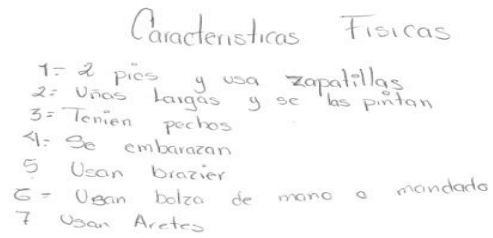 Caracteristicas Fisicas
1= 2 pies y usa zapatillas
2= Uñas Largas y se las pintan
3= Tenien pechos
4= Se embarazan
5 Usan brazier
6= Usan bolza de mano o mandado
7 Usan Aretes